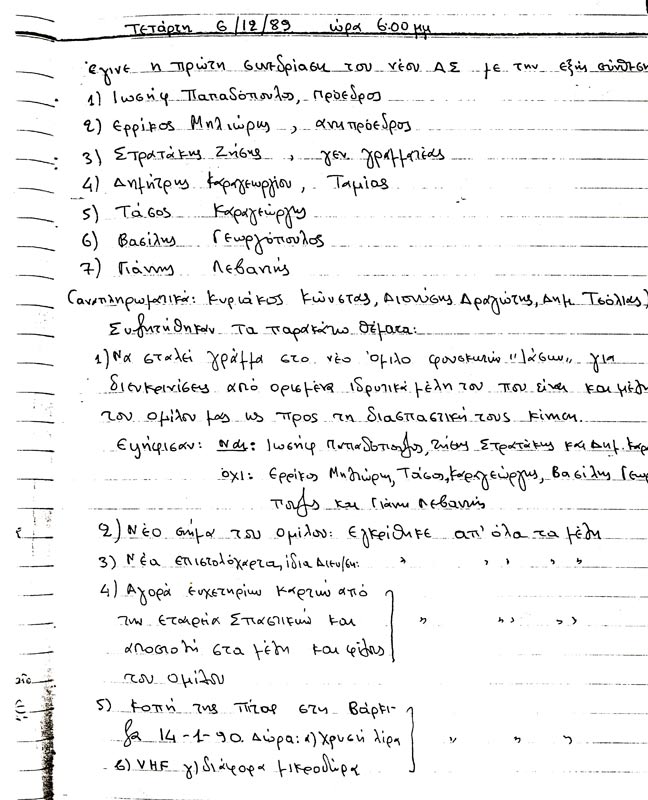 Τετάρτη 6/12/89 ώρα 6:00 μμ
Έγινε η πρώτη συνεδρίαση του νέου ΔΣ με την εξής σύνθεση
1) Ιωσήφ Παπαδόπουλος, πρόεδρος
2) Ερρίκος Μηλιώρης, αντιπρόεδρος
3) Στρατάκης Ζήσης, γεν. γραμματέας
4) Δημήτρης Καραγεωργίου, Ταμίας
5) Τάσος Καραγεώργης
6) Βασίλης Γεωργόπουλος
7) Γιάννης Λεβαντής
(αναπληρωματικά: Κυριάκος Κώνστας, Διονύσης Δραγιώτης, Δημ Τσόλιας)
Συζητήθηκαν τα παρακάτω θέματα:
1) Να σταλεί γράμμα στο νέο όμιλο φουσκωτών "Ιάσων" για
διευκρινίσεις από ορισμένα ιδρυτικά μέλη του που είναι και μέλη
του ομίλου μας ως προς τη διασπαστική τους κίνηση.
Εψήφισαν: Ναι: Ιωσήφ Παπαδόπουλος, Ζήσης Στρατάκης και Δημ. Καρα
όχι: Ερρίκος Μηλιώρης, Τάσος Καραγεώργης, Βασίλης Γεωργ
πουλος και Γιάννη Λεβαντής
2) Νέο σήμα του ομίλου: Εγκρίθηκε απ' όλα τα μέλη
3) Νέα επιστολόχαρτα, ίδια Διευ/ση: " " " "
4) Αγορά ευχετηρίων καρτών από
την εταιρεία Σπαστικών και " " " "
αποστολή στα μέλη και φίλους
του ομίλου
5) Κοπή της πίτας στη Βάρκι-
ζα 14-1-90. Δώρα: α) χρυσή λίρα " " "
β) VHF γ) διάφορα μικροδώρα